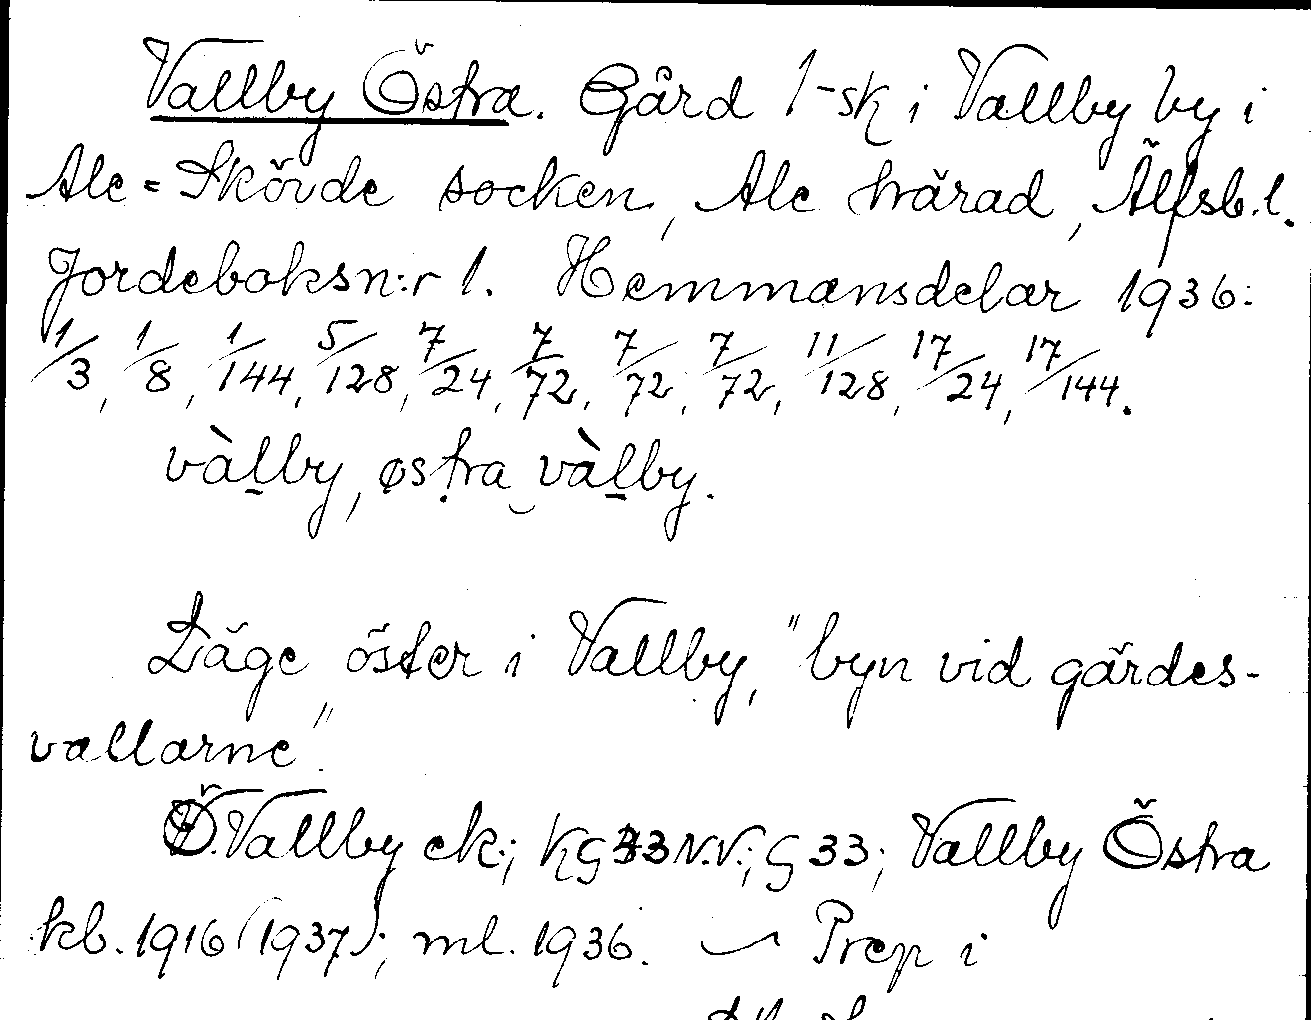 Vallby Östra. Gård 1-sk i Vallby by i
Ale-Skövde socken, Ale härad, Älfsb.l.
Jordeboksn:r 1. Hemmansdelar 1936:
1/3, 1/8, 1/144, 5/128, 7/24, 7/72, 7/72, 7/72, 11/128, 17/24, 17/144.
vàl̠by, østra‿vàl̠by.
Läge öster i Vallby, "byn vid gärdes-
vallarne".
Ö. Vallby ek.; KG 33 N.V.; G 33; Vallby Östra
kb. 1916 (1937); ml. 1936. Prep i